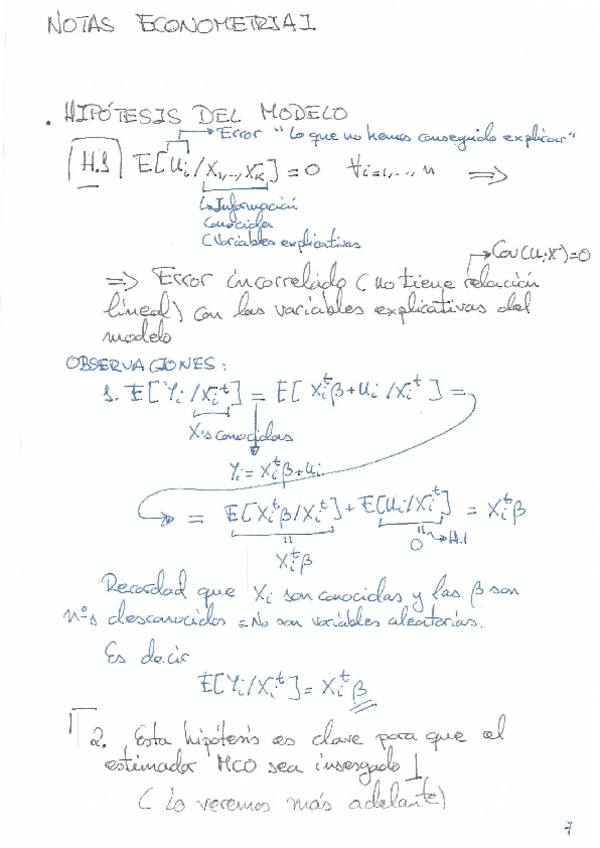 NOTAS ECONOMETRIA I
. HIPÓTESIS DEL MODELO
→ Error "Lo que no hemos conseguido explicar"
H.1 E[Ui/X1,..,XK] = 0 ∀i=1,..., n ⇒
↳ Información
conocida
(Variables explicativas
→ Cov(U;X)=0
⇒ Error incorrelado (no tiene relación
lineal) con las variables explicativas del
modelo
OBSERVACIONES:
1. E[Yi/Xi^t] = E[Xi^tβ+Ui/Xi^t] =
X's conocidas
Yi = Xi^tβ+Ui
= E[Xi^tβ/Xi^t] + E[Ui/Xi^t] = Xi^tβ
Xi^tβ
0 → H.1
Recordad que Xi son conocidas y las β son
nºs desconocidos = No son variables aleatorias.
Es decir
E[Yi/Xi^t] = Xi^tβ
2. Esta hipótesis es clave para que el
estimador MCO sea insesgado
(Lo veremos más adelante)